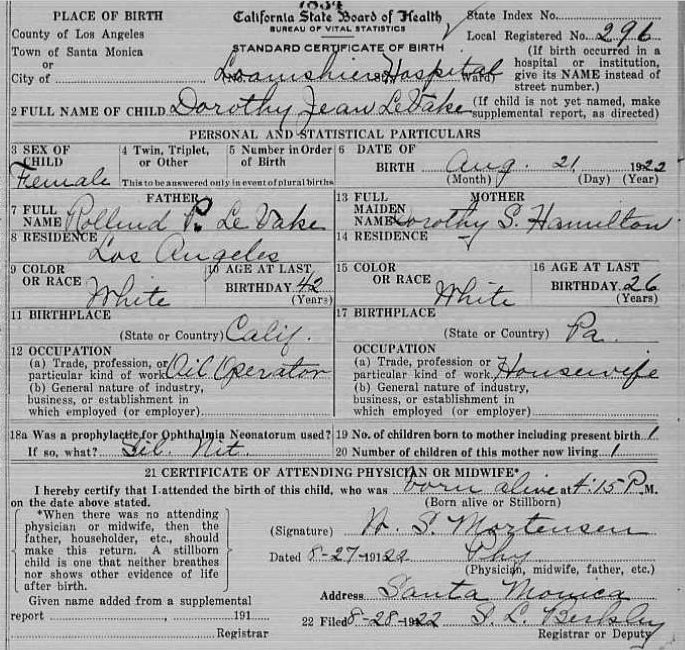 1854
PLACE OF BIRTH
County of Los Angeles
Town of Santa Monica
or
City of
California State Board of Health
BUREAU OF VITAL STATISTICS
STANDARD CERTIFICATE OF BIRTH
Loamshier Hospital
State Index No.
Local Registered No. 296
(If birth occurred in a
hospital or institution,
give its NAME instead of
street number.)
2 FULL NAME OF CHILD Dorothy Jean LeVake
(If child is not yet named, make
supplemental report, as directed)
PERSONAL AND STATISTICAL PARTICULARS
3 SEX OF
CHILD
Female
4 Twin, Triplet,
or Other
5 Number in Order
of Birth
This to be answered only in event of plural births
6 DATE OF
BIRTH Aug. 21, 1922
(Month) (Day) (Year)
FATHER
7 FULL
NAME P. Le Vake
8 RESIDENCE
Los Angeles
9 COLOR
OR RACE White
10 AGE AT LAST
BIRTHDAY 42
(Years)
11 BIRTHPLACE
(State or Country) Calif.
12 OCCUPATION
(a) Trade, profession, or
particular kind of work Oil Operator
(b) General nature of industry,
business, or establishment in
which employed (or employer)
MOTHER
13 FULL
MAIDEN
NAME Dorothy S. Hamilton
14 RESIDENCE
15 COLOR
OR RACE White
16 AGE AT LAST
BIRTHDAY 26
(Years)
17 BIRTHPLACE
(State or Country) Pa.
OCCUPATION
(a) Trade, profession or
particular kind of work Housewife
(b) General nature of industry,
business, or establishment in
which employed (or employer)
18a Was a prophylactic for Ophthalmia Neonatorum used?
If so, what? Sil. Nit.
19 No. of children born to mother including present birth 1
20 Number of children of this mother now living 1
21 CERTIFICATE OF ATTENDING PHYSICIAN OR MIDWIFE*
I hereby certify that I attended the birth of this child, who was born alive at 4:15 P.M.
on the date above stated. (Born alive or Stillborn)
*When there was no attending
physician or midwife, then the
father, householder, etc., should
make this return. A stillborn
child is one that neither breathes
nor shows other evidence of life
after birth.
(Signature) W. S. Mortensen
Dated 8-27-1922 Phy
(Physician, midwife, father, etc.)
Address Santa Monica
Given name added from a supplemental
report , 191
Registrar
22 Filed 8-28-1922 S. L. Berkley
Registrar or Deputy